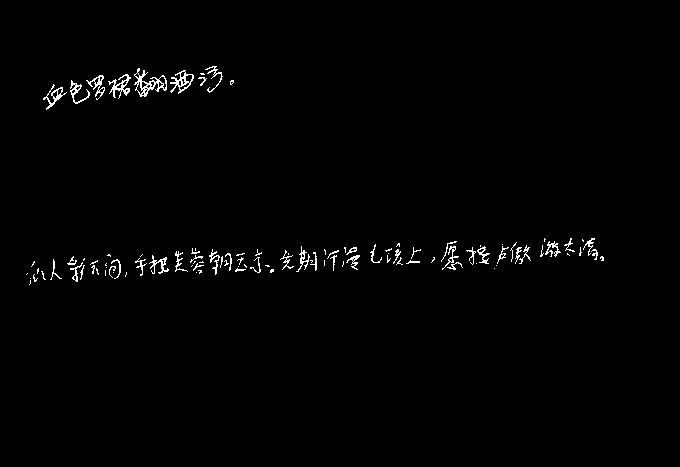 血色罗裙翻酒污。
仙人彩云间,手把芙蓉朝玉京。先期汗漫九垓上,愿接卢敖游太清。